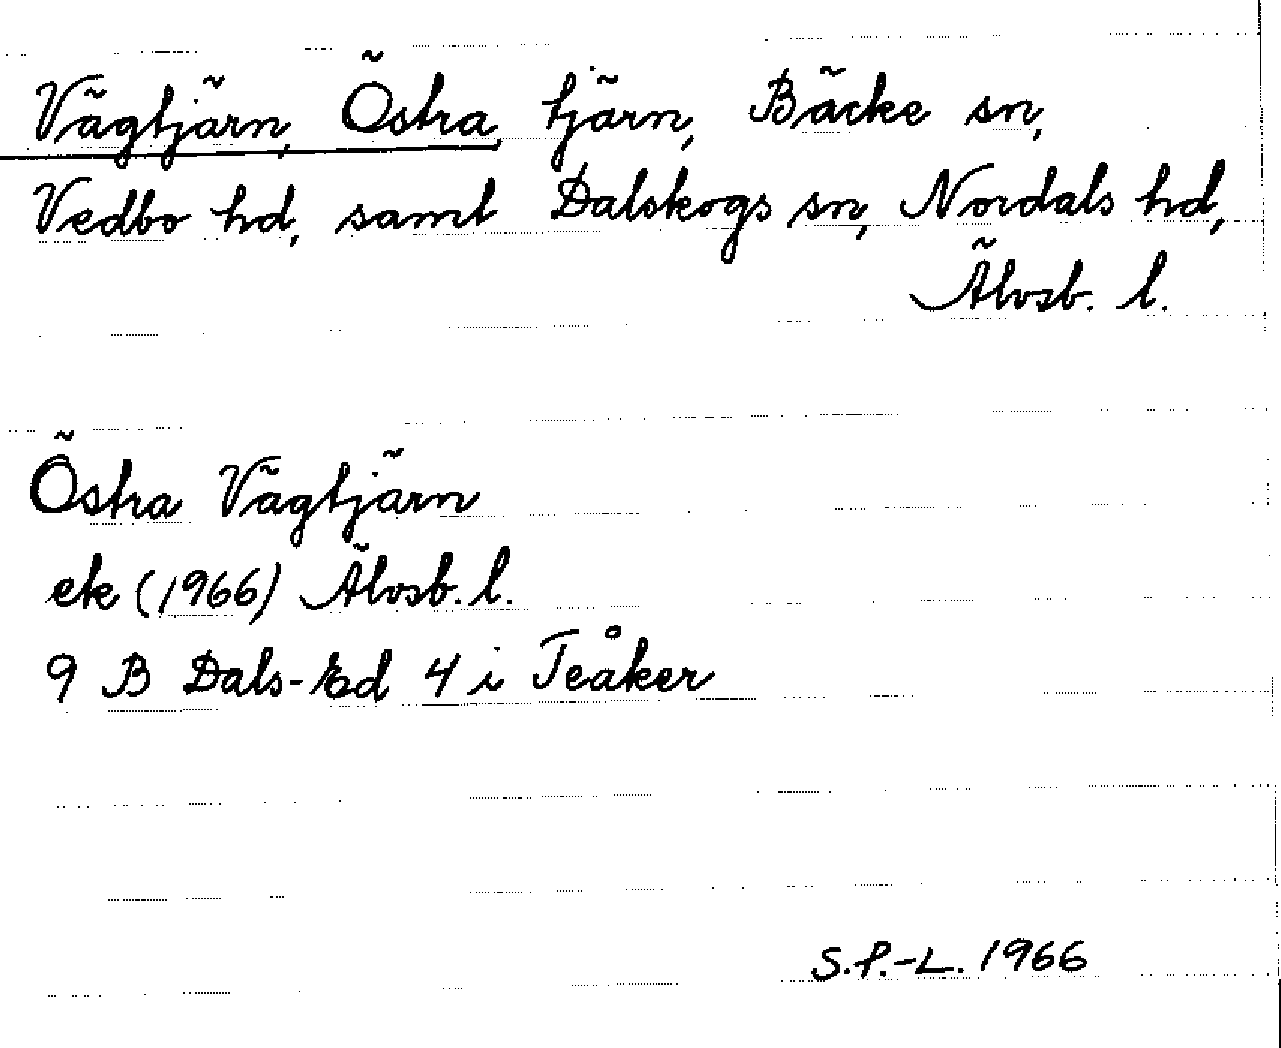 Vägtjärn, Östra, tjärn, Bäcke sn,
Vedbo hd, samt Dalskogs sn, Nordals hd,
Älvsb. l.
Östra Vägtjärn
ek (1966) Älvsb. l.
9 B Dals-Ed 4 i Teåker
S.P.-L. 1966